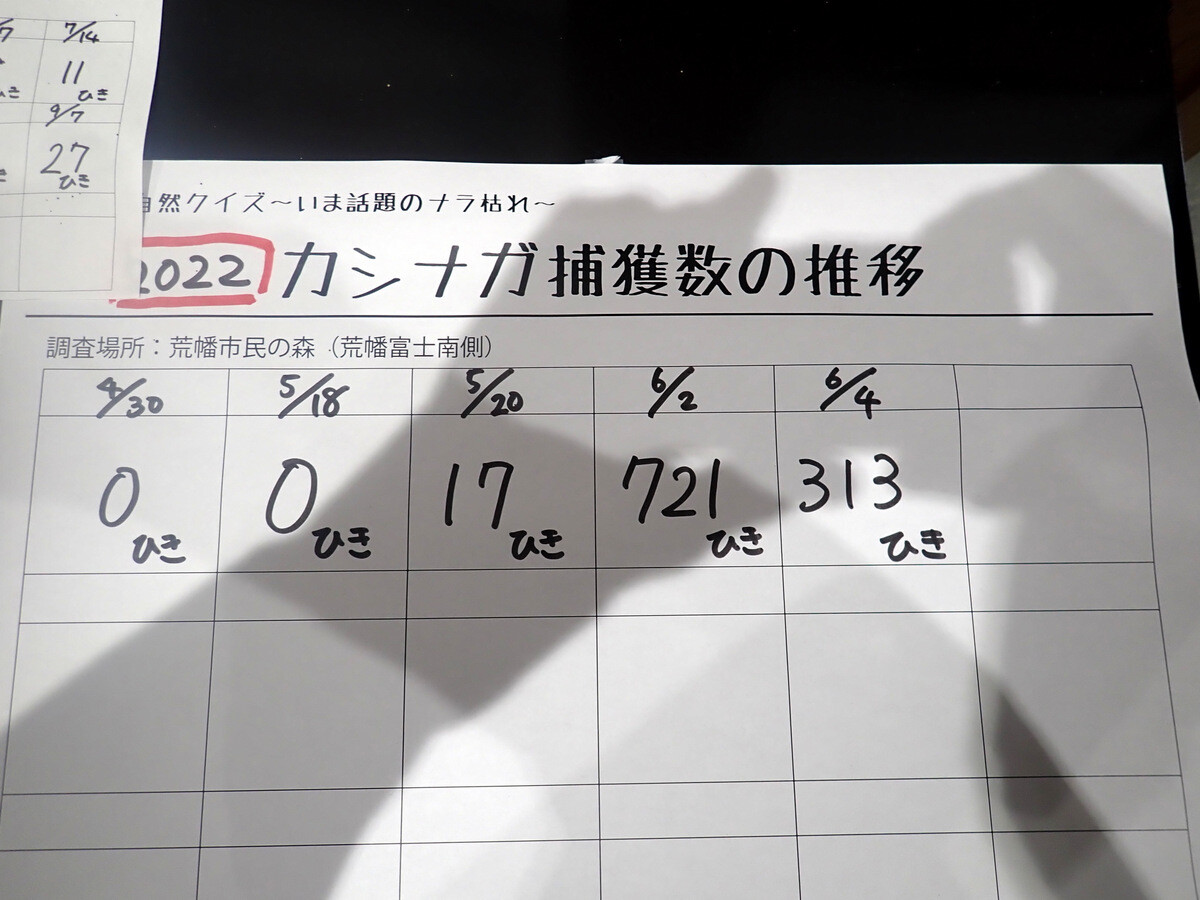 7/14
11
ひき
9/7
27
ひき
自然クイズ～いま話題のナラ枯れ～
2022 カシナガ捕獲数の推移
調査場所：荒幡市民の森（荒幡富士南側）
4/30 5/18 5/20 6/2 6/4
0 0 17 721 313
ひき ひき ひき ひき ひき